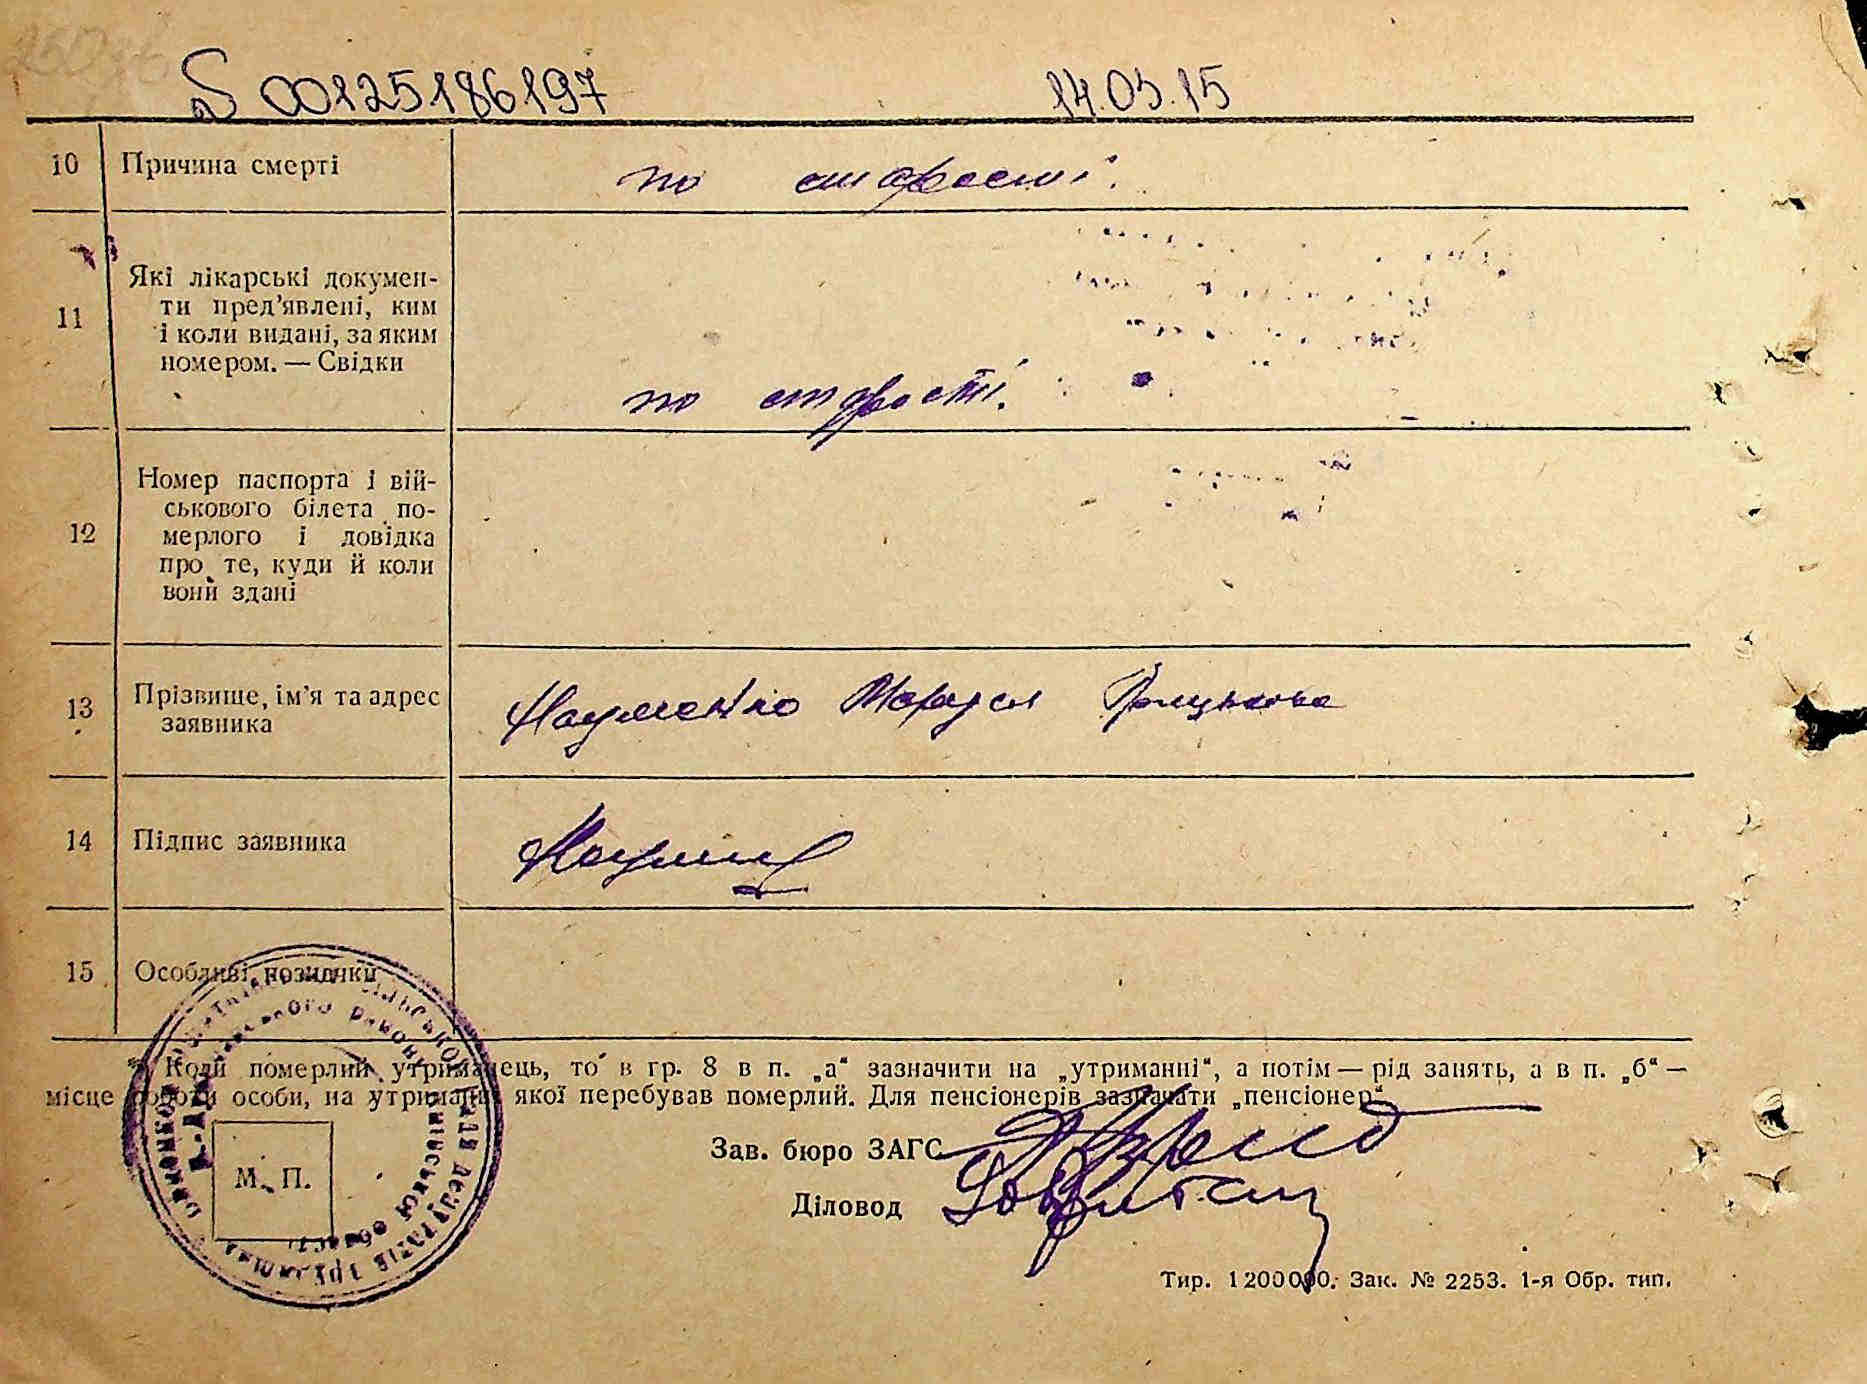 S 00125186197 14.05.15
10 Причина смерті по старості.
11 Які лікарські докумен-
ти пред’явлені, ким
і коли видані, за яким
номером. — Свідки
по старості.
12 Номер паспорта і вій-
ськового білета по-
мерлого і довідка
про те, куди й коли
вони здані
13 Прізвище, ім’я та адрес
заявника
Науменко
14 Підпис заявника
15 Особливі позначки
Коли померлий утриманець, то в гр. 8 в п. „а“ зазначити на „утриманні“, а потім — рід занять, а в п. „б“ —
місце роботи особи, на утриманні якої перебував померлий. Для пенсіонерів зазначати „пенсіонер“
Зав. бюро ЗАГС
М. П.
Діловод
Тир. 1200000. Зак. № 2253. 1-я Обр. тип.